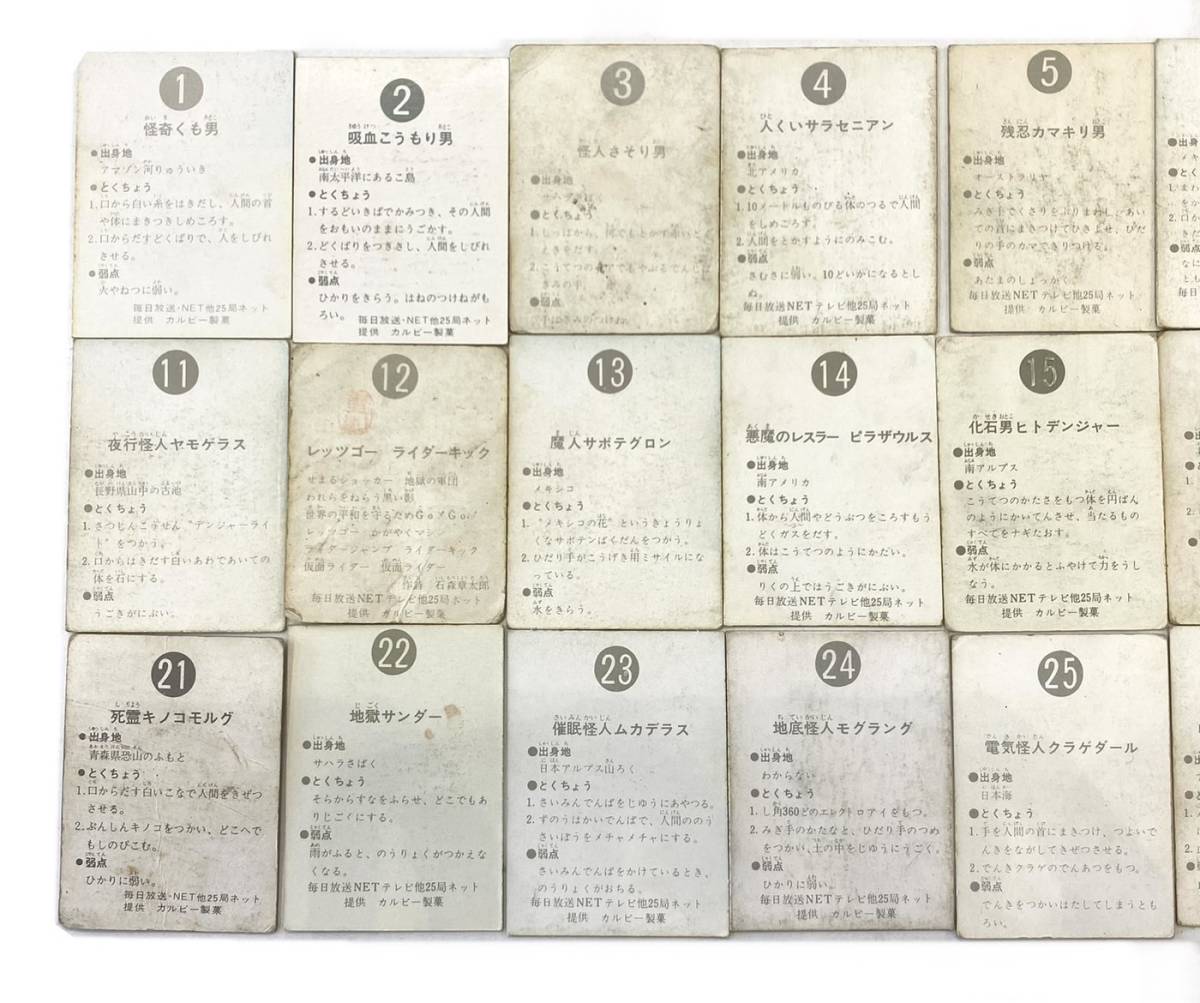 1
怪奇くも男
●出身地
アマゾン河りゅういき
●とくちょう
1.口から白い糸をはきだし、人間の首
や体にまきつきしめころす。
2.口からだすどくばりで、人をしびれ
させる。
●弱点
火やねつに弱い。
毎日放送・NET他25局ネット
提供 カルビー製菓
2
吸血こうもり男
●出身地
南太平洋にあるこ島
●とくちょう
1.するどいきばでかみつき、その人間
をおもいのままにうごかす。
2.どくばりをつきさし、人間をしびれ
させる。
●弱点
ひかりをきらう。はねのつけねがも
ろい。
毎日放送・NET他25局ネット
提供 カルビー製菓
3
怪人さそり男
●出身地
●とくちょう
●弱点
4
人くいサラセニアン
●出身地
北アメリカ
●とくちょう
1.10メートルものびる体のつるで人間
をしめころす。
2.人間をとかすようにのみこむ。
●弱点
さむさに弱い。10どいかになるとし
ぬ。
毎日放送NETテレビ他25局ネット
提供 カルビー製菓
5
残忍カマキリ男
●出身地
オーストラリヤ
●とくちょう
みぎ手でくさりをふりまわし、あい
ての首にまきつけてひきよせ、ひだ
りの手のカマできりつける。
●弱点
あたまのしょっかく。
毎日放送NETテレビ他25局ネット
提供 カルビー製菓
11
夜行怪人ヤモゲラス
●出身地
長野県山中の古池
●とくちょう
1.さつじんこうせん"デンジャーライ
ト"をつかう。
2.口からはきだす白いあわであいての
体を石にする。
●弱点
うごきがにぶい。
12
レッツゴー ライダーキック
せまるショッカー 地獄の軍団
われらをねらう黒い影
世界の平和を守るためGo!Go!
レッツゴー かがやくマシン
ライダージャンプ ライダーキック
仮面ライダー 仮面ライダー
作詩 石森章太郎
毎日放送NETテレビ他25局ネット
提供 カルビー製菓
13
魔人サボテグロン
●出身地
メキシコ
●とくちょう
1."メキシコの花"というきょうりょ
くなサボテンばくだんをつかう。
2.ひだり手がこうげき用ミサイルにな
っている。
●弱点
水をきらう。
14
悪魔のレスラー ピラザウルス
●出身地
南アメリカ
●とくちょう
1.体から人間やどうぶつをころすもう
どくガスをだす。
2.体はこうてつのようにかだい。
●弱点
りくの上ではうごきがにぶい。
毎日放送NETテレビ他25局ネット
提供 カルビー製菓
15
化石男ヒトデンジャー
●出身地
南アルプス
●とくちょう
こうてつのかたさをもつ体を円ばん
のようにかいてんさせ、当たるもの
すべてをナギたおす。
●弱点
水が体にかかるとふやけて力をうし
なう。
毎日放送NETテレビ他25局ネット
提供 カルビー製菓
21
死霊キノコモルグ
●出身地
青森県恐山のふもと
●とくちょう
1.口からだす白いこなで人間をきぜつ
させる。
2.ぶんしんキノコをつかい、どこへで
もしのびこむ。
●弱点
ひかりに弱い。
毎日放送・NET他25局ネット
提供 カルビー製菓
22
地獄サンダー
●出身地
サハラさばく
●とくちょう
そらからすなをふらせ、どこでもあ
りじごくにする。
●弱点
雨がふると、のうりょくがつかえな
くなる。
毎日放送NETテレビ他25局ネット
提供 カルビー製菓
23
催眠怪人ムカデラス
●出身地
日本アルプス山ろく
●とくちょう
1.さいみんでんぱをじゆうにあやつる。
2.ずのうはかいでんぱで、人間ののう
さいぼうをメチャメチャにする。
●弱点
さいみんでんぱをかけているとき、
のうりょくがおちる。
毎日放送NETテレビ他25局ネット
提供 カルビー製菓
24
地底怪人モグラング
●出身地
わからない
●とくちょう
1.し角360どのエレクトロアイをもつ。
2.みぎ手のかたなと、ひだり手のつめ
をつかい、土の中をじゆうにうごく。
●弱点
ひかりに弱い。
毎日放送NETテレビ他25局ネット
提供 カルビー製菓
25
電気怪人クラゲダール
●出身地
日本海
●とくちょう
1.手を人間の首にまきつけ、つよいで
んきをながしてきぜつさせる。
2.でんきクラゲのでんあつをもつ。
●弱点
でんきをつかいはたしてしまうとも
ろい。